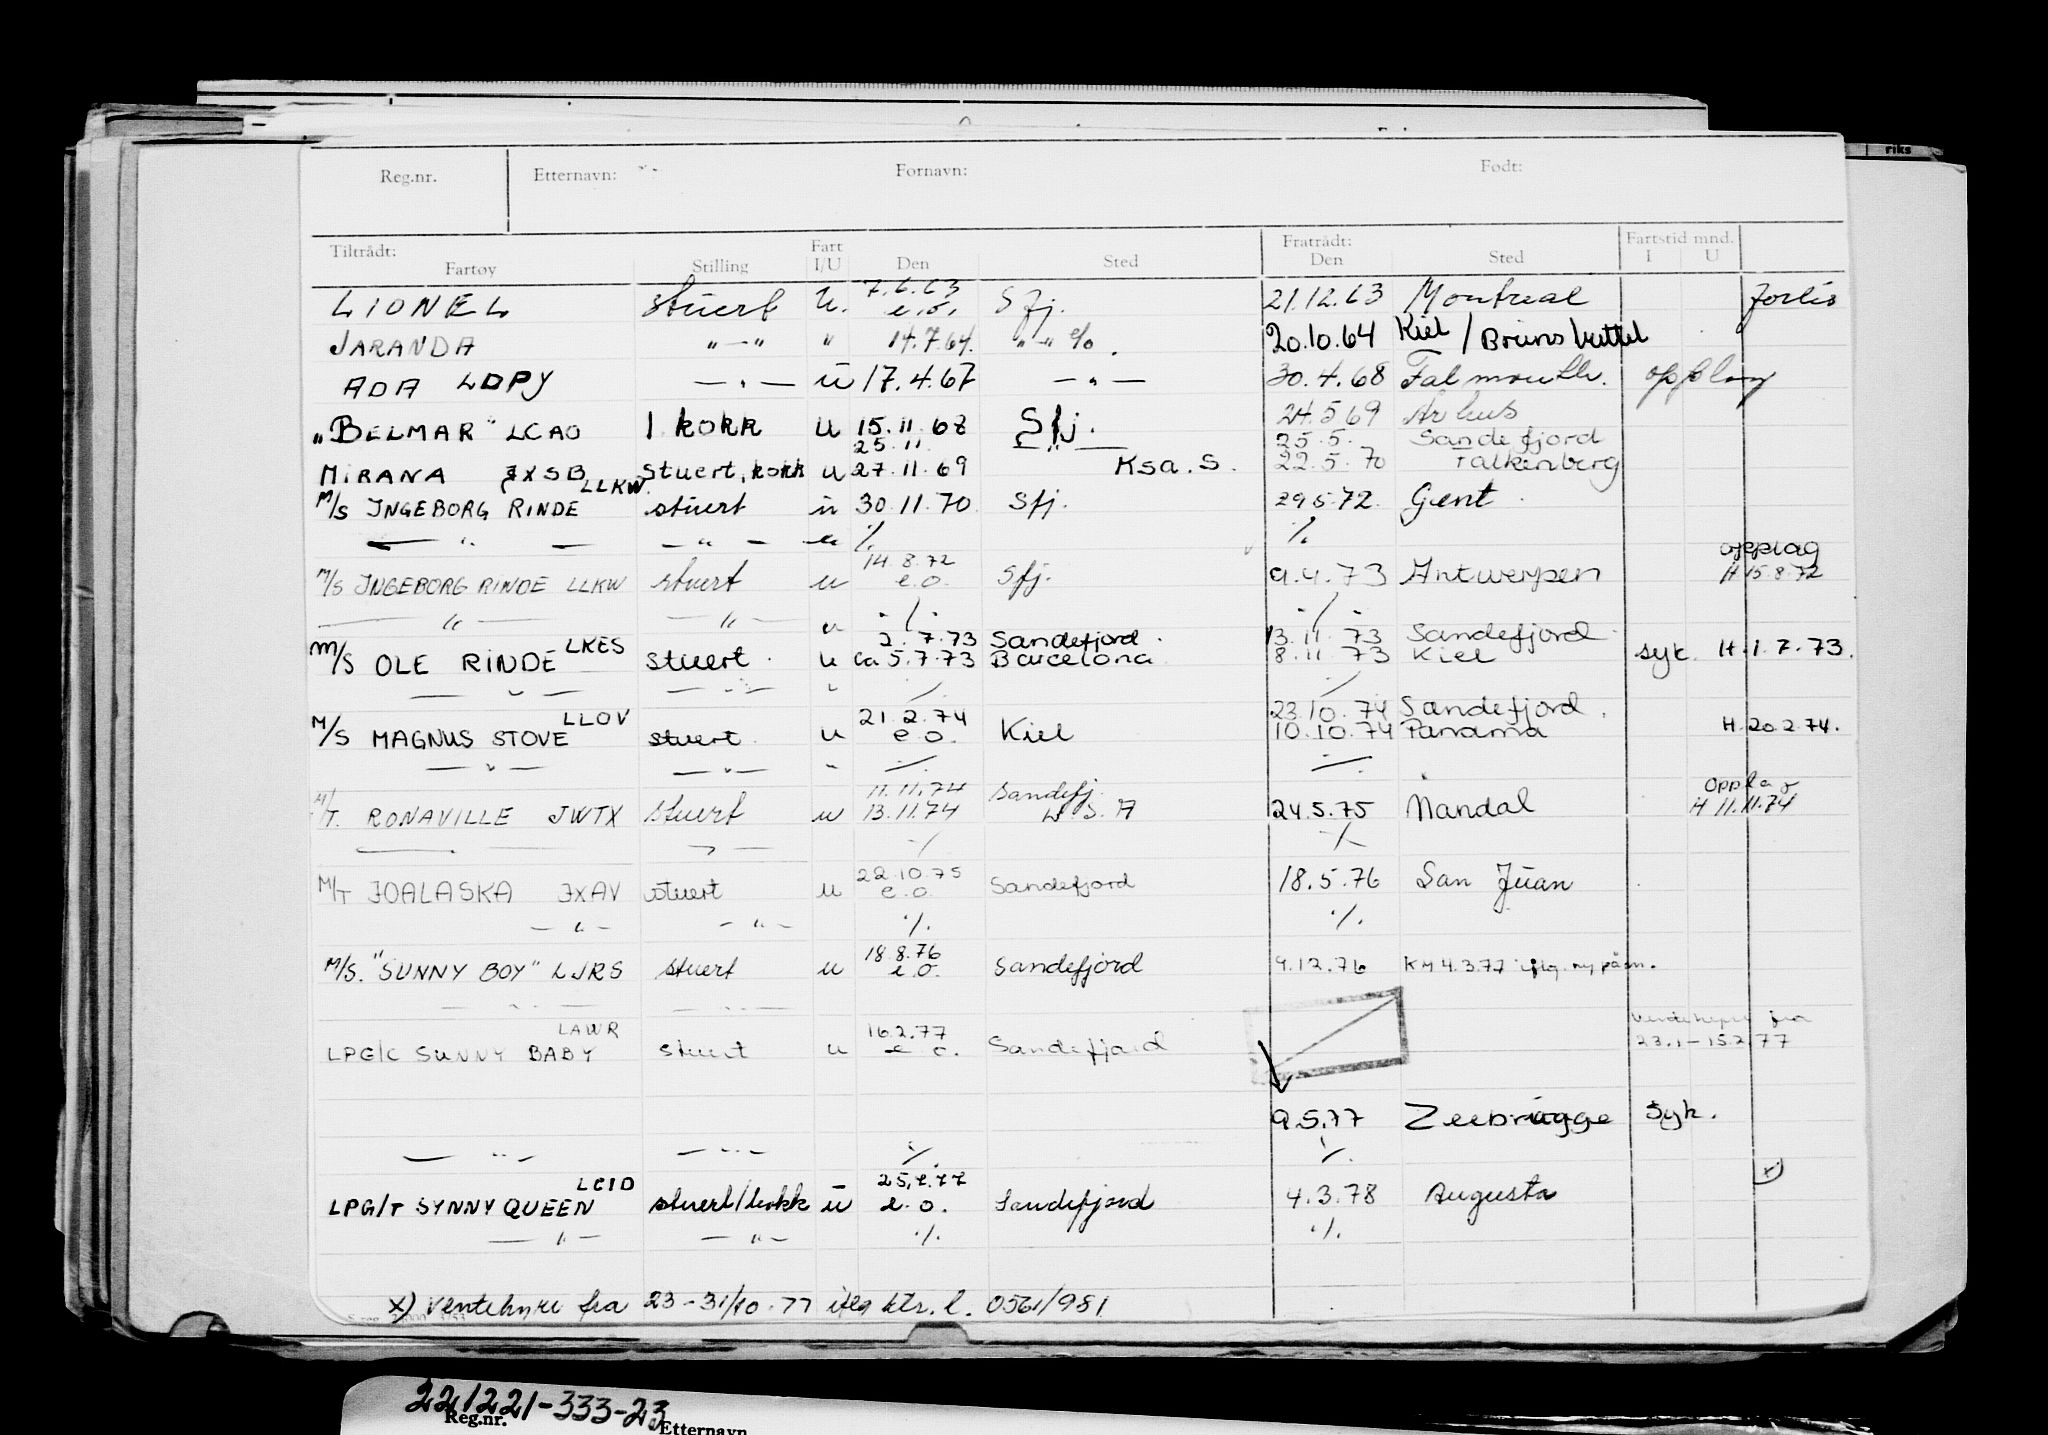 riks
Reg.nr. Etternavn: Fornavn: Født:
Tiltrådt: Fratrådt: Fartstid mnd.
Fartøy Stilling Fart I/U Den Sted Den Sted I U
LIONEL stuert u. 7.6.63 e.o. Sfj. 21.12.63 Montreal forlis
JARANDA " — " " 14.7.64. " — " e/o . 20.10.64 Kiel / Brunsbuttel
ADA LDPY — " — u 17.4.67 — " — 30.4.68 Falmouth. opplag
"BELMAR" LCAO 1 kokk u 15.11.68 Sfj. 24.5.69 Århus
25.11 — " — 25.5. Sandefjord
MIRANA JXSB stuert, kokk u 27.11.69 Ksa. S. 22.5.70 Falkenberg
M/S INGEBORG RINDE LLKW. stuert u 30.11.70 Sfj. 29.5.72. Gent
— " — — " — u ·/. ·/.
M/S INGEBORG RINDE LLKW stuert u 14.8.72 e.o. Sfj. 9.4.73 Antwerpen opplag H 15.8.72
— " — — " — u ·/. ·/.
2.7.73 Sandefjord. 13.11.73 Sandefjord.
M/S OLE RINDE LKES stuert. u ca 5.7.73 Barcelona 8.11.73 Kiel syk. H.1.7.73.
— " — — " — " ·/. ·/.
23.10.74 Sandefjord.
M/S MAGNUS STOVE LLOV stuert u 21.2.74 e.o. Kiel 10.10.74 Panama H.20.2.74.
— " — — " — " ·/. ·/.
11.11.74 Sandefj. opplag
M/T. RONAVILLE JWTX stuert u 13.11.74 U.S.A 24.5.75 Mandal H 11.11.74
— " — ·/. ·/.
M/T JOALASKA JXAV stuert u 22.10.75 e.o. Sandefjord 18.5.76 San Juan
— " — — " — ·/. ·/.
M/S. "SUNNY BOY" LJRS stuert u 18.8.76 e.o. Sandefjord 9.12.76 KM 4.3.77 iflg. ny påm.
— " — — " —
LPG/C SUNNY BABY LAWR stuert u 16.2.77 e.o. Sandefjord Ventehyre fra 23.1–15.2.77
9.5.77 Zeebrügge Syk.
— " — — " — ·/. ·/.
LPG/T SYNNY QUEEN LCID stuert/kokk u 25.7.77 e.o. Sandefjord 4.3.78 Augusta x)
— " — — " — ·/. ·/.
x) Ventehyre fra 23-31/10.77 iflg ktr. l. 0561/981
221221-333-23
Reg.nr. Etternavn